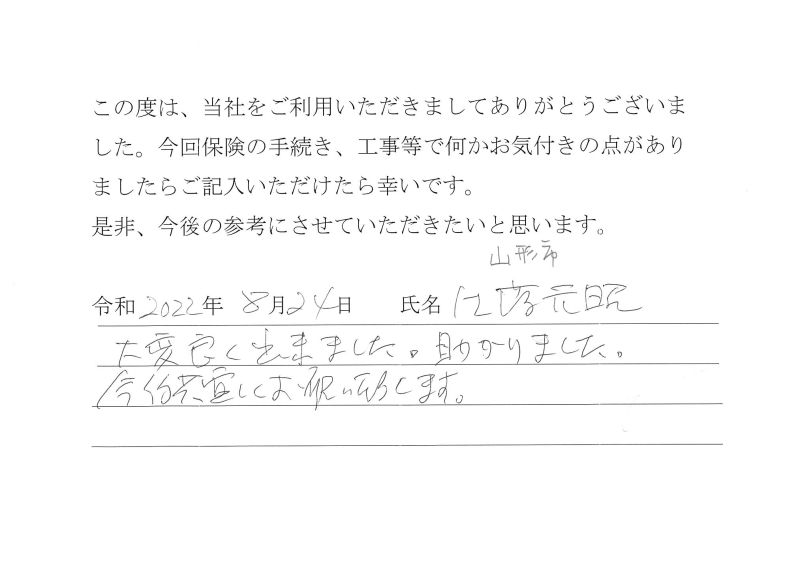 この度は、当社をご利用いただきましてありがとうございま
した。今回保険の手続き、工事等で何かお気付きの点があり
ましたらご記入いただけたら幸いです。
是非、今後の参考にさせていただきたいと思います。
山形市
令和2022年 8月24日 氏名 佐藤元昭
大変良く出来ました。助かりました。
今后共宜しくお願い致します。